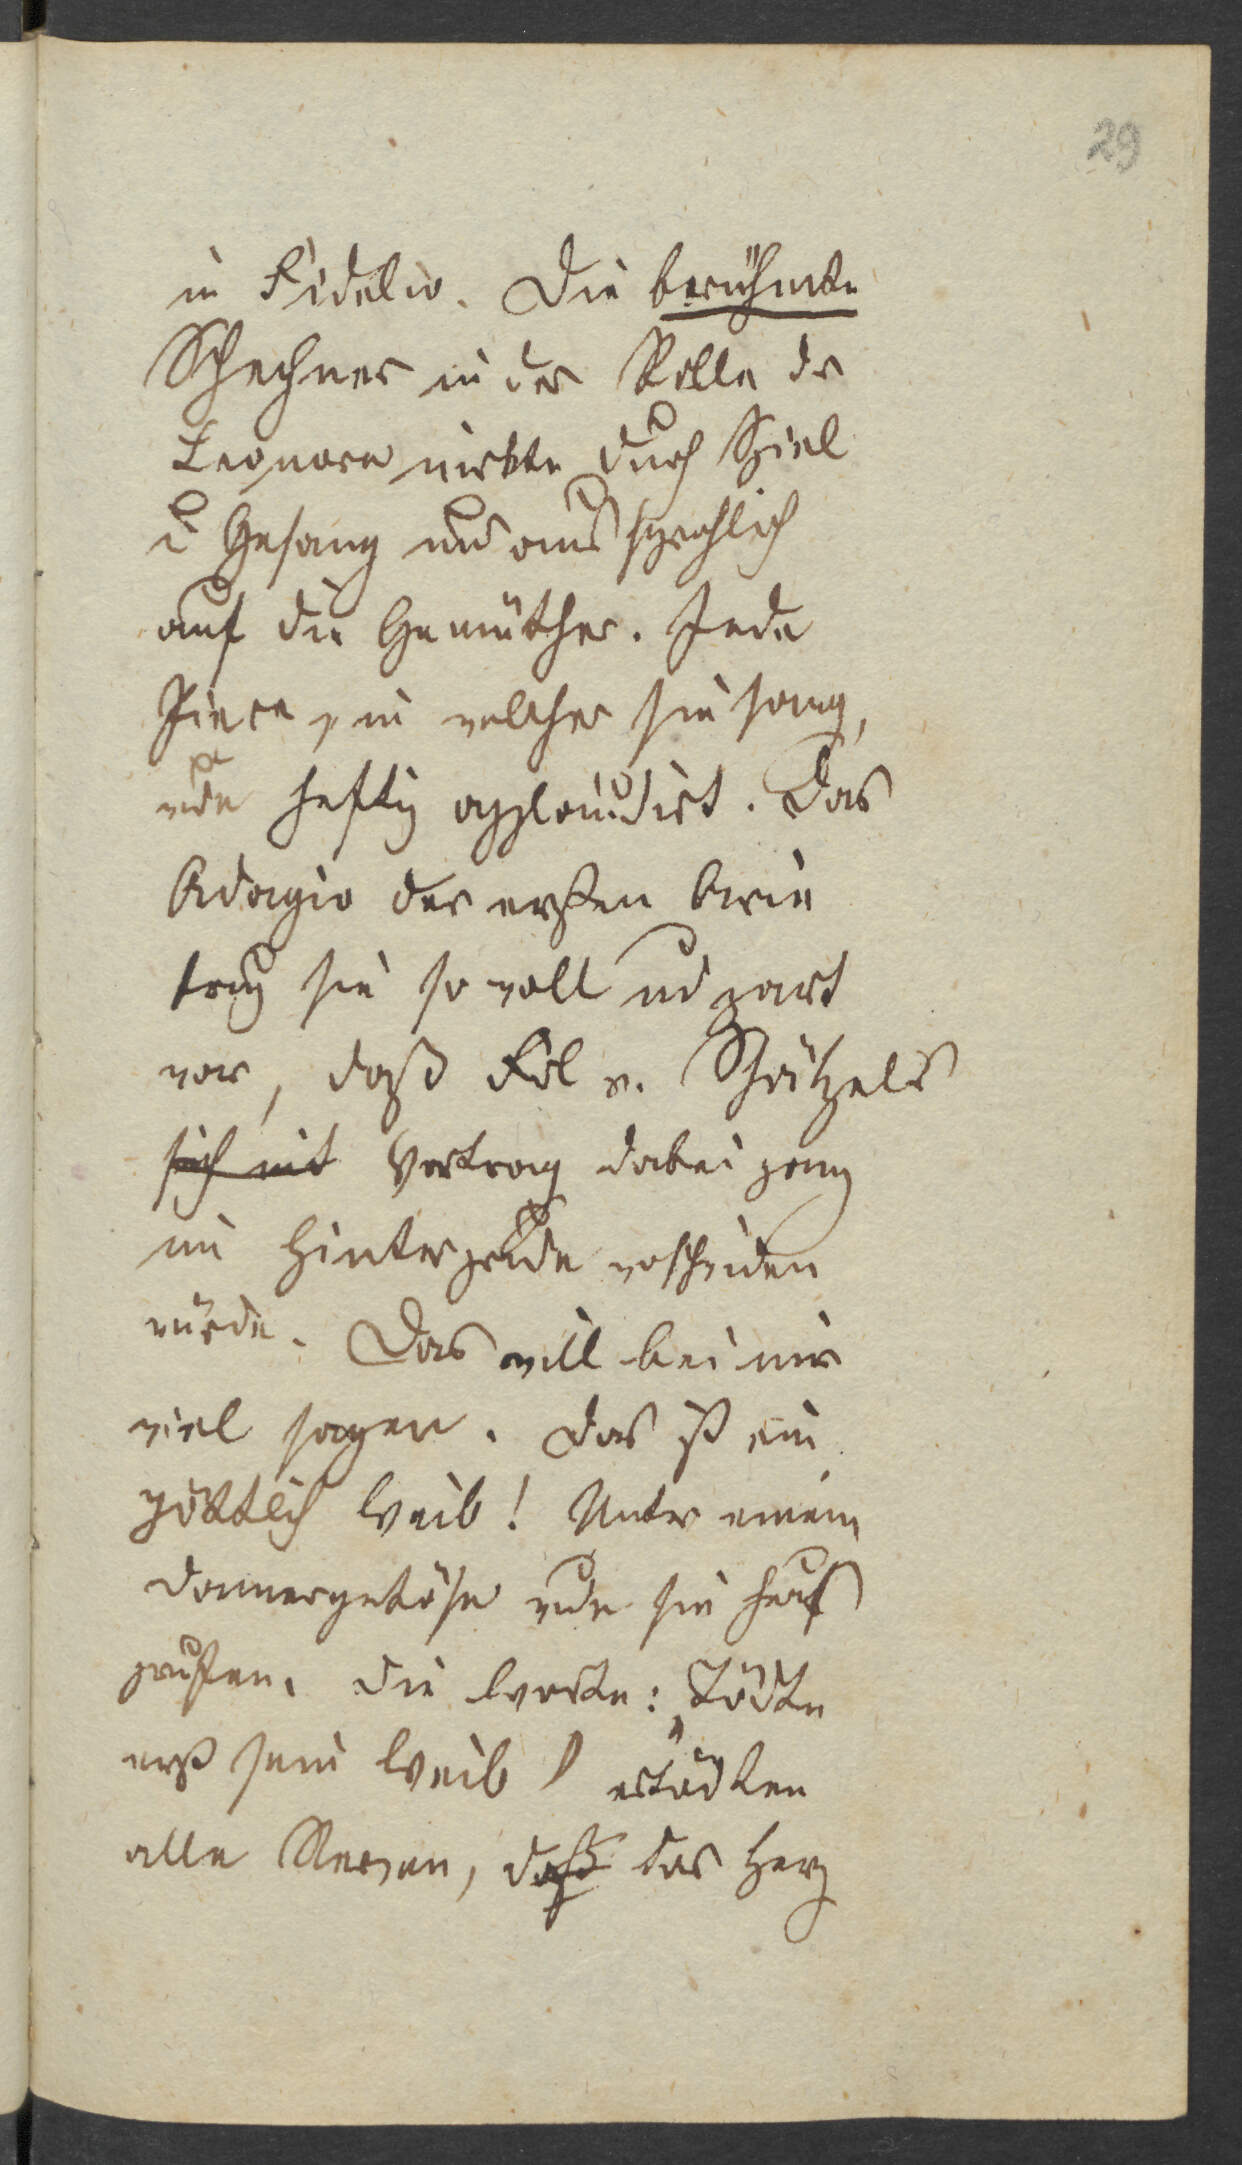 29
in Fidelio. Die berühmte
Schechner in der Rolle der
Leonore wirkte durch Spiel
u Gesang unaussprechlich
auf die Gemüther. Jede
Piece, in welcher sie sang,
wde heftig applaudirt. Das
Adagio der ersten Arie
trug sie so voll und zart
vor, daß Frl v. Schätzels
sich mit Vortrag dabei ganz
im Hintergrunde verschwinden
würde. Das will bei mir
viel sagen. Das ist ein
göttlich Weib! Unter einem
Donnergetöse wde sie heraus
gerufen. Die Worte: „Tödte
erst sein Weib" ertödten
alle Nerven, daß das Herz